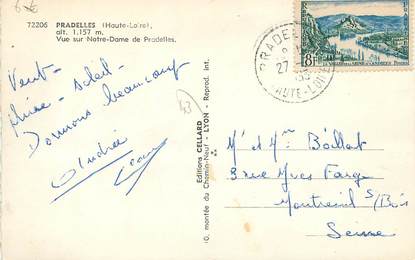 72206 PRADELLES (Haute-Loire),
alt. 1.157 m.
Vue sur Notre-Dame de Pradelles.
Vent -
pluie - soleil -
Dormons beaucoup
Andrée
43
Editions CELLARD
10, montée du Chemin-Neuf - LYON - Reprod. int.
8F
27
HAUTE-LOIRE
Mr et Mme Boillat
3 rue Yves Farge
Montreuil s/Bois
Seine